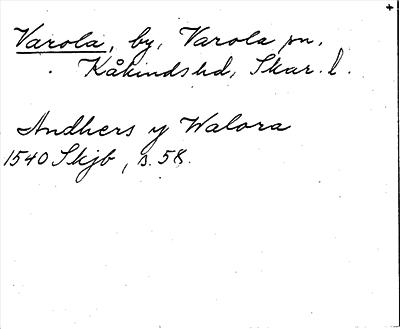 Varola, by, Varola sn,
Kåkinds hd, Skar. l.
Andhers y Walora
1540 Skjb, s. 58.